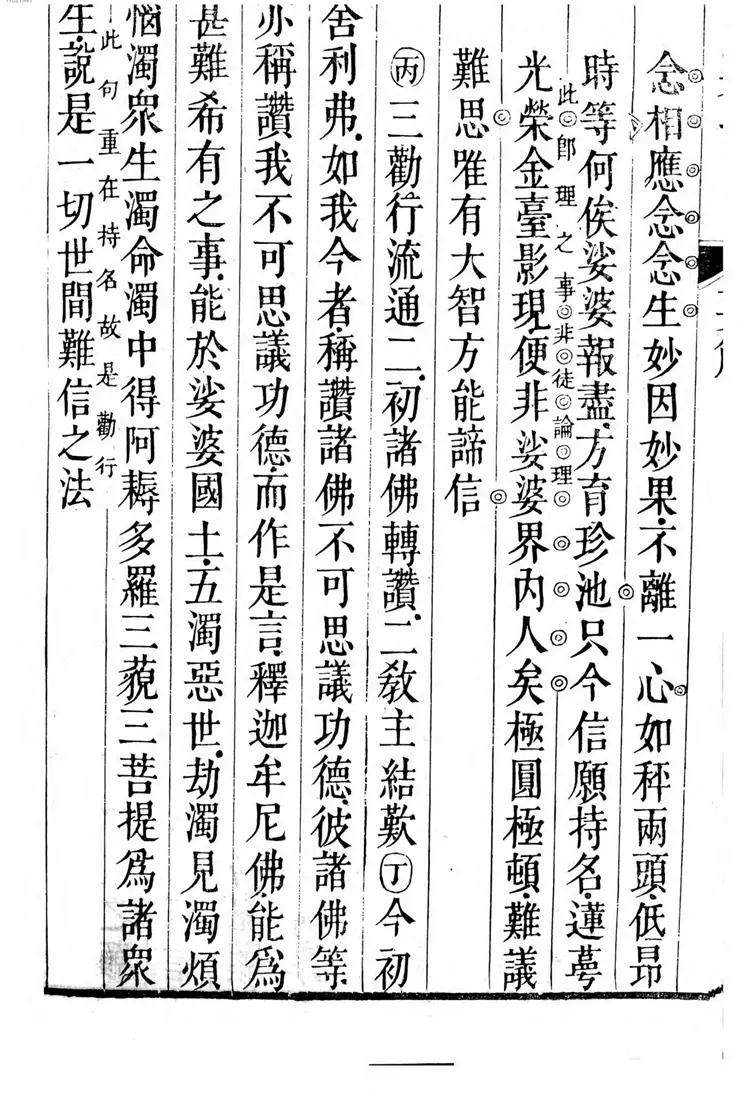 念相應念念生妙因妙果不離一心如秤兩頭低昂
時等何俟娑婆報盡方育珍池只今信願持名蓮萼
此卽理之事非徒論理
光榮金臺影現便非娑婆界內人矣極圓極頓難議
難思唯有大智方能諦信
丙三勸行流通二初諸佛轉讚二敎主結歎丁今初
舍利弗如我今者稱讚諸佛不可思議功德彼諸佛等
亦稱讚我不可思議功德而作是言釋迦牟尼佛能爲
甚難希有之事能於娑婆國土五濁惡世劫濁見濁煩
惱濁衆生濁命濁中得阿耨多羅三藐三菩提爲諸衆
此句重在持名故是勸行
生說是一切世間難信之法